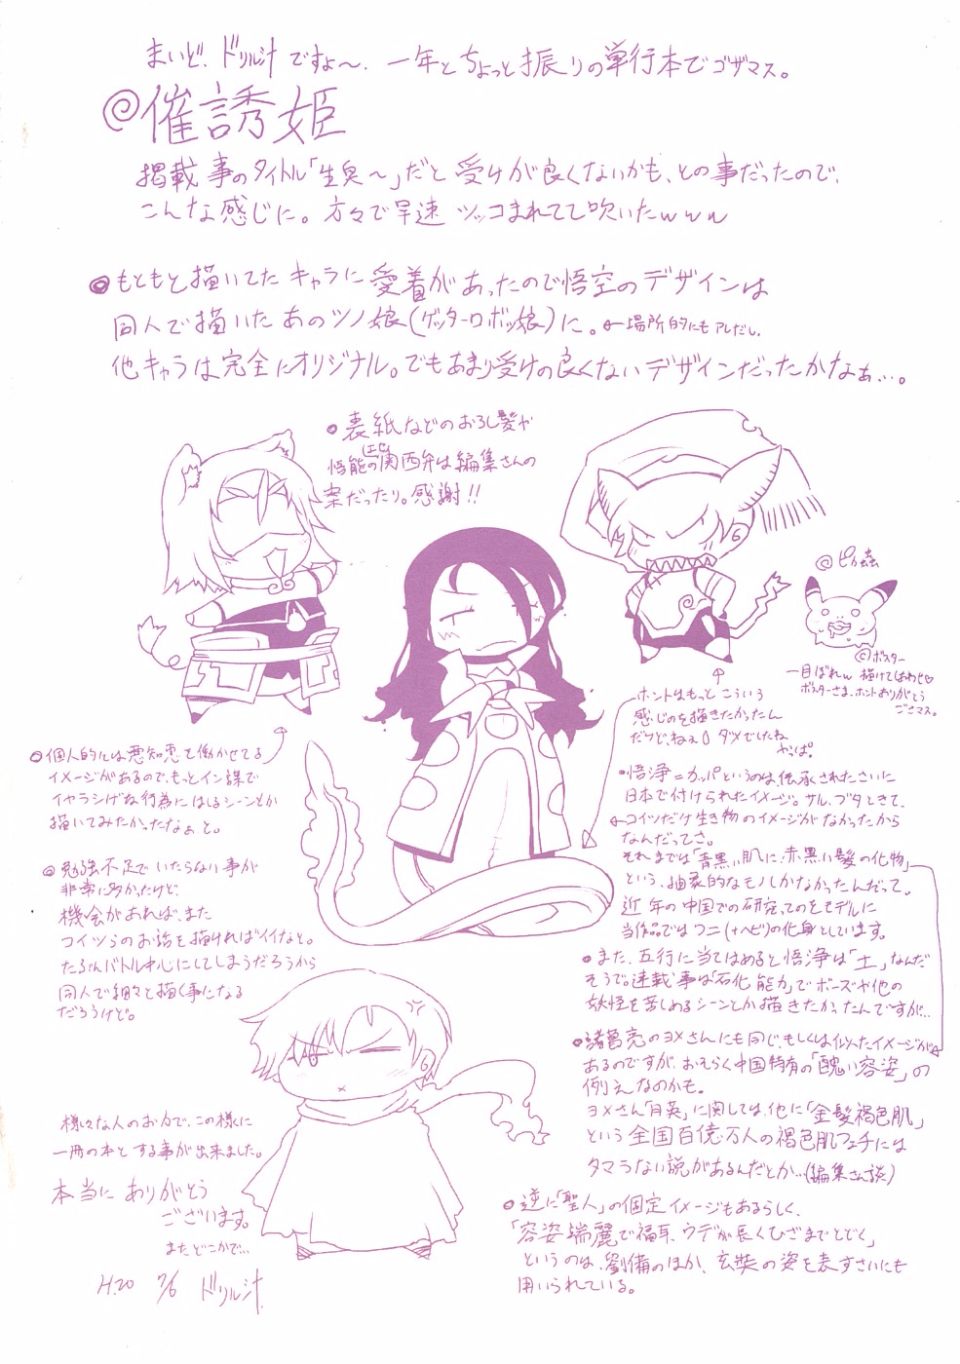 まいど、ドリル汁ですよ〜、一年とちょっと振りの単行本でゴザマス。
@催誘姫
掲載事のタイトル「生臭〜」だと受けが良くないかも、との事だったので、
こんな感じに。方々で早速ツッコまれてて吹いたwww
もともと描いてたキャラに愛着があったので悟空のデザインは
同人で描いたあのツノ娘(ゲッターロボッ娘)に。←場所的にもアレだし。
他キャラは完全にオリジナル。でもあまり受けの良くないデザインだったかなぁ…。
表紙などのおろし髪や
悟能の関西弁は編集さんの
案だったり。感謝!!
@ピカ蟲
©ボスター
一目ぼれw 描けてしあわせ♡
ボスターさま、ホントありがとう
ございマス。
ホントはもっとこういう
感じのを描きたかったん
だけど、ねぇ。ダメでしたね
やっぱ。
個人的には悪知恵を働かせてる
イメージがあるので、もっとイン謀で
イヤラシげな行為にはしるシーンとか
描いてみたかったなぁと。
勉強不足でいたらない事が
非常に多かったけど、
機会があれば、また
コイツらのお話を描ければイイなと。
たぶんバトル中心にしてしまうだろうから
同人で細々と描く事になる
だろうけど。
悟浄=カッパというのは、伝承されたさいに
日本で付けられたイメージ。サル、ブタときて、
コイツだけ生き物のイメージがなかったから
なんだってさ。
それまでは「青黒い肌に赤黒い髪の化物」
という、抽象的なモノしかなかったんだって。
近年の中国での研究ってのをモデルに
当作品ではワニ(+ヘビ)の化身としています。
また、五行に当てはめると悟浄は「土」なんだ
そうで。連載事は「石化能力」でボーズや他の
妖怪を苦しめるシーンとか描きたかったんですが…
諸葛亮のヨメさんにも同じ、もしくは似たイメージが
あるのですが、おそらく中国特有の「醜い容姿」の
例えなのかも。
ヨメさん「月英」に関しては、他に「金髪褐色肌」
という全国百億万人の褐色肌フェチには
タマらない説があるんだとか…(編集さん談)
逆に「聖人」の固定イメージもあるらしく、
「容姿端麗で福耳、ウデが長くひざまでとどく」
というのは、劉備のほか、玄奘の姿を表すさいにも
用いられている。
様々な人のお力で、この様に
一冊の本とする事が出来ました。
本当にありがとう
ございます。
またどこかで…
H.20 7/6 ドリル汁